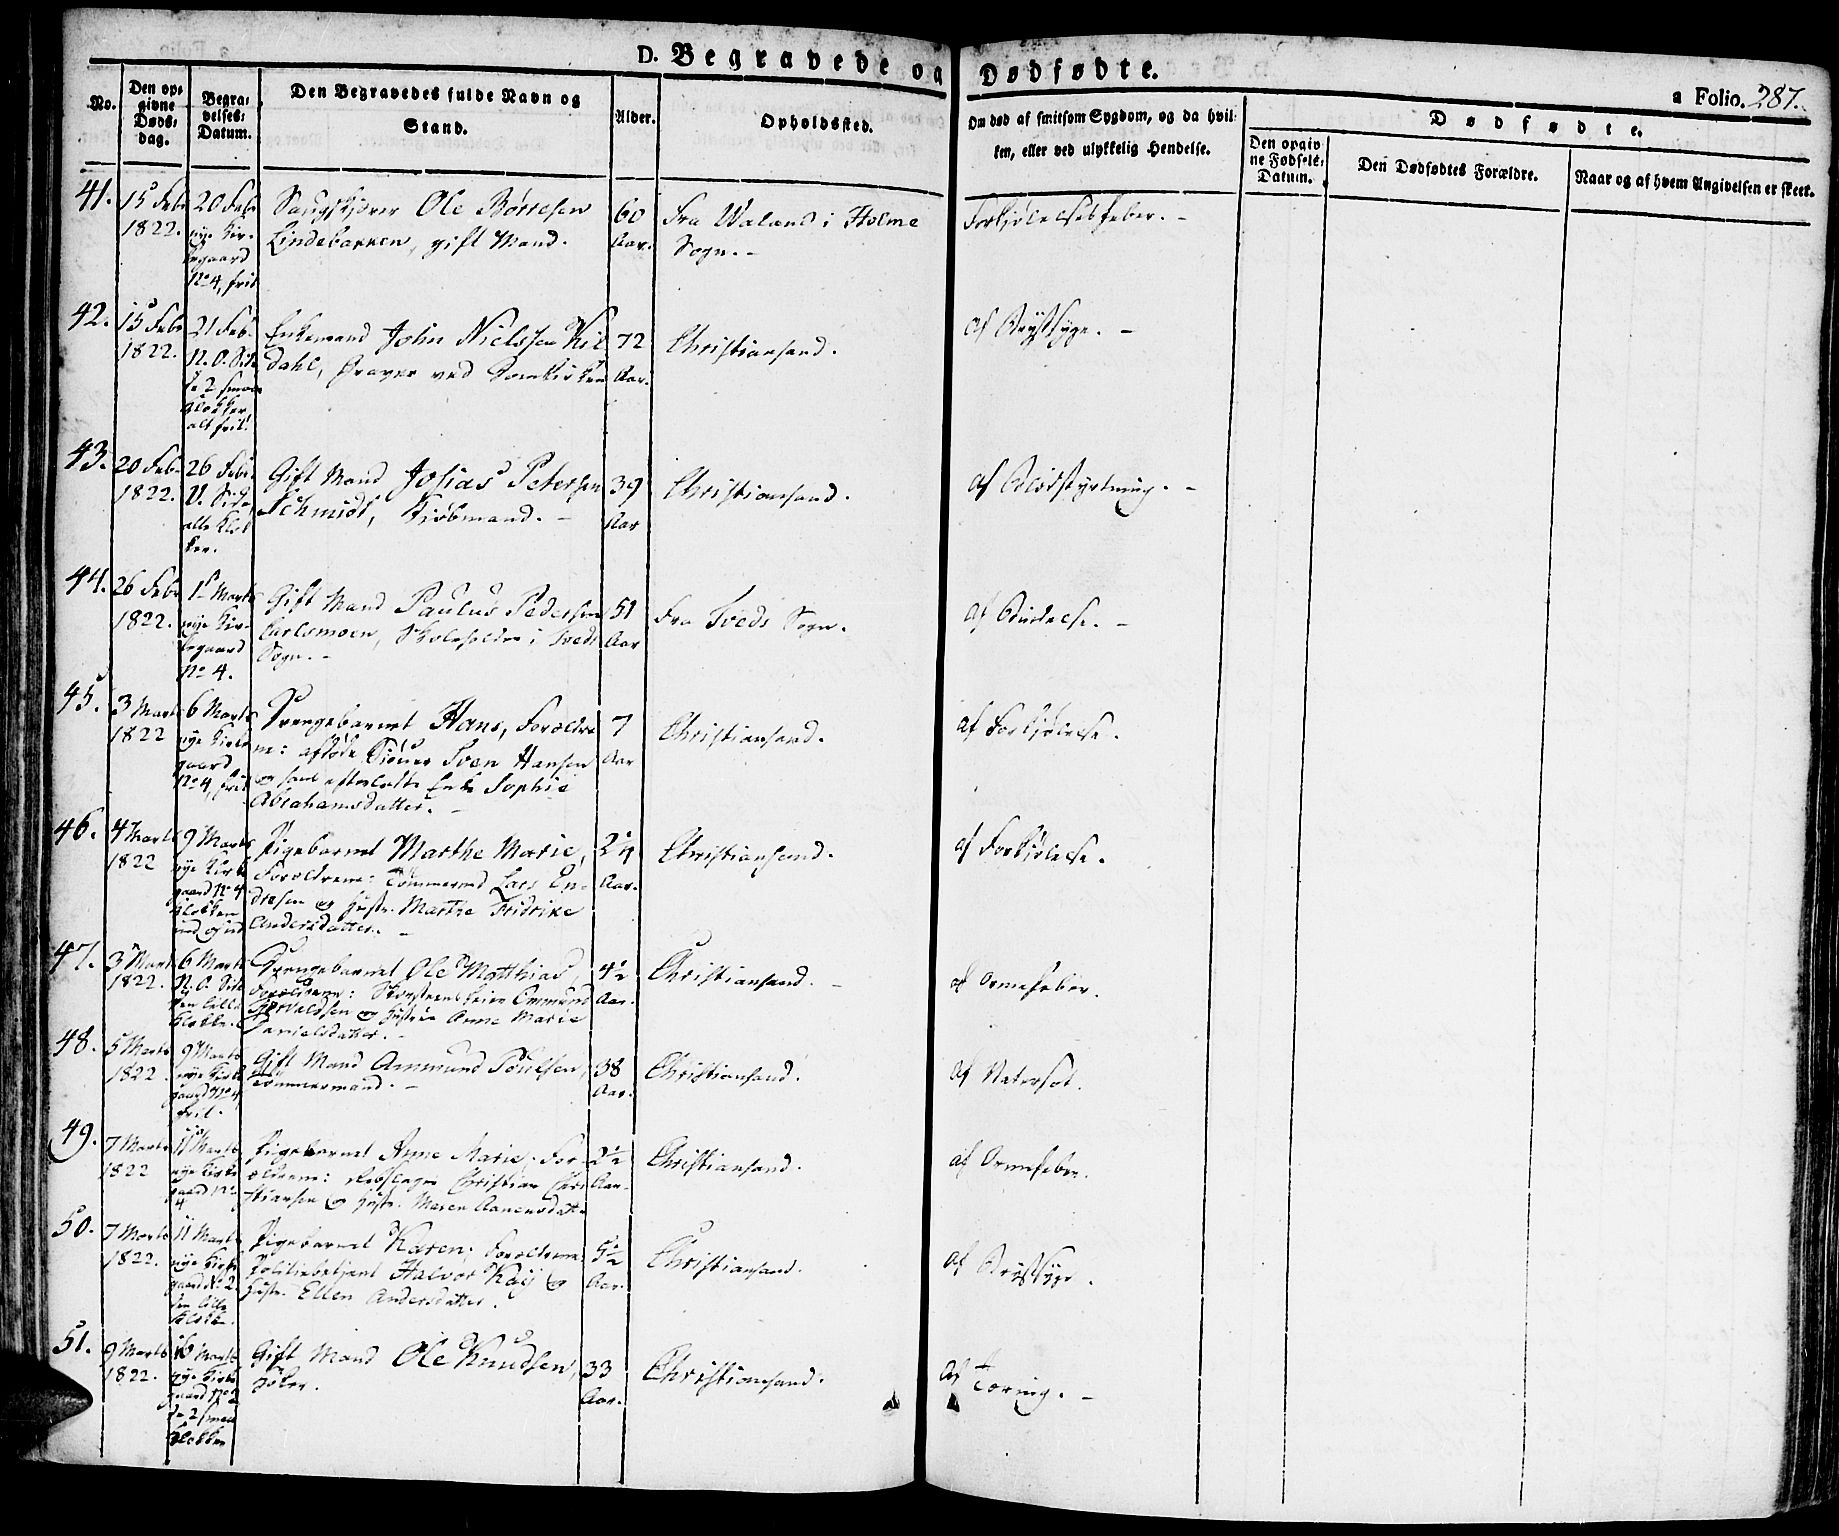 D. Begravede og Dødfødte.
a Folio. 287.
No.
Den op-
givne
Døds-
dag.
Begra-
velses-
Datum.
Den Begravedes fulde Navn og
Stand.
Alder.
Opholdssted.
Om død af smitsom Sygdom, og da hvil-
ken, eller ved ulykkelig Hendelse.
Dødfødte.
Den opgiv-
ne Fødsels-
Datum.
Den Dødfødtes Forældre.
Naar og af hvem Angivelsen er skeet.
41.
15 Feb.
1822.
20 Feb.
nye Kir-
kegaard
No 4, frit
Ole Börresen
Lindebakken, gift Mand.
60
Aar.
Fra Waland i Holme
Sogn.
Forkjølelsesfeber.
42.
15 Feb.
1822.
21 Feb.
N. O. Side
de 2 smaa
Klokker
alt frit.
Enkemand John Nielssen Kil
dahl, Graver ved Domkirken
72
Aar.
Christiansand.
af Brystsyge.
43.
20 Feb.
1822.
26 Feb.
V. Side,
alle Klok
ker.
Gift Mand Josias Petersen
Schmidt, Kiøbmand.
39
Aar
Christiansand.
af Blodstyrtning.
44.
26 Feb.
1822.
1st Marts
nye Kir-
kegaard
No 4.
Gift Mand Paulus Pedersen
Carlsmoen, Skoleholder i Tveds
Sogn.
51
Aar
Fra Tveds Sogn.
af
45.
3 Marts
1822
6 Marts
nye Kirke
gaard
No 4, frit
Drengebarnet Hans, Forældre
ne: afdøde Sven Hansen
og hans efterladte Enke Sophie
Abrahamsdatter.
7
Aar
Christiansand.
af Forkjølelse.
46.
4 Marts
1822
9 Marts
nye Kirke
gaard No 4
Klokken
ind og ud
Pigebarnet Marthe Marie,
Forældrene: Tømmermd Lars En-
dresen og Hustr. Marthe Fridrike
Andersdatter.
2 1/4
Aar.
Christiansand.
af Forkjølelse.
47.
3 Mart
1822.
6 Marts
N. O. Side
den lille
Klokke.
Drengebarnet Ole Matthias,
Forældrene: Skorsteensfeier Ommund
og Hustrue Anne Marie
Danielsdatter.
4 1/2
Aar.
Christiansand.
af Ormefeber.
48.
5 Marts
1822.
9 Marts
nye Kirke
gaard No 4
frit.
Gift Mand Ommund Poulsen,
Tømmermand.
38
Aar.
Christiansand.
af Vatersot.
49.
7 Marts
1822
11 Marts
nye Kirke
gaard No
4
Pigebarnet Anne Marie. For-
ældrene: Rebslager Christian Chri
stiansen og Hustr. Maren Aanensdatt.
2 1/2
Aar.
Christiansand.
af Ormefeber.
50.
7 Marts
1822.
11 Marts
nye Kirke
gaard No 2
den lille
Klokke.
Pigebarnet Karen; Forældrene:
Politiebetjent Halvor Kaÿ og
Hustr. Ellen Andersdatter.
5 1/2
Aar.
Christiansand.
af Brystsyge.
51.
9 Marts
1822.
16 Marts
nye Kirke
gaard No 2
de 2 smaa
Klokker
Gift Mand Ole Knudsen,
Høker.
33
Aar.
Christiansand.
af Tæring.